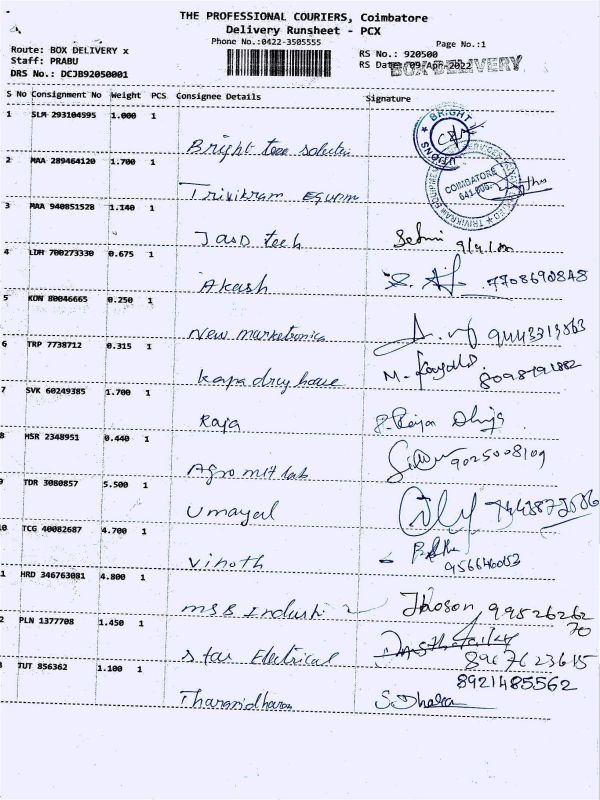 THE PROFESSIONAL COURIERS, Coimbatore
Delivery Runsheet - PCX
Phone No.:0422-3505555
Page No.:1
Route: BOX DELIVERY x
RS No.: 920500
Staff: PRABU
RS Date: 09-Apr-2022
BOX DELIVERY
DRS No.: DCJB92050001
S No Consignment No Weight PCS Consignee Details Signature
1 SLM 293104595 1.000 1
Bright tech
BRIGHT
2 MAA 289464120 1.700 1
Trivikram Equpm
COIMBATORE
3 MAA 940851528 1.140 1
Jaso tech
4 LDH 700273330 0.675 1
Akash 7708690848
5 KON 80046665 0.250 1
New marketronics
6 TRP 7738712 0.315 1
Kapa drey house
M.
7 SVK 60249385 1.700 1
Raja
8 HSR 2348951 0.440 1
Agro mit lab 9025008109
9 TDR 3080857 5.500 1
Umayal
10 TCG 40082687 4.700 1
Vinoth
HRD 346763081 4.800 1
MSB
99526262
70
2 PLN 1377708 1.450 1
Star Electrical
8921485562
TUT 856362 1.100 1
Tharanidharan S. Dhara